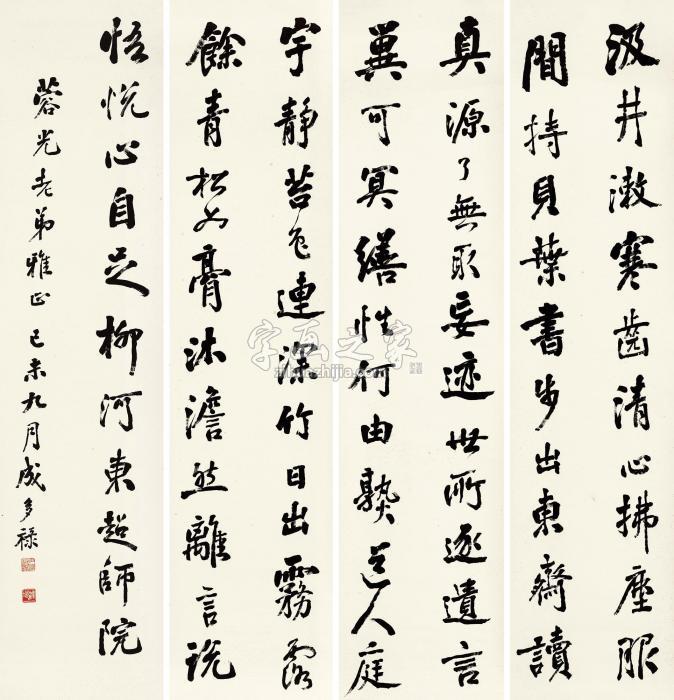 汲井漱寒齒清心拂塵服
閒持貝葉書步出東齋讀
真源了無取妄迹世所逐遺言
冀可冥繕性何由孰道人庭
宇靜苔色連深竹日出霧露
餘青松如膏沐澹然離言說
悟悅心自足柳河東超師院
蓉光老弟雅正己未九月成多祿
字画之家
zihuazhijia.com